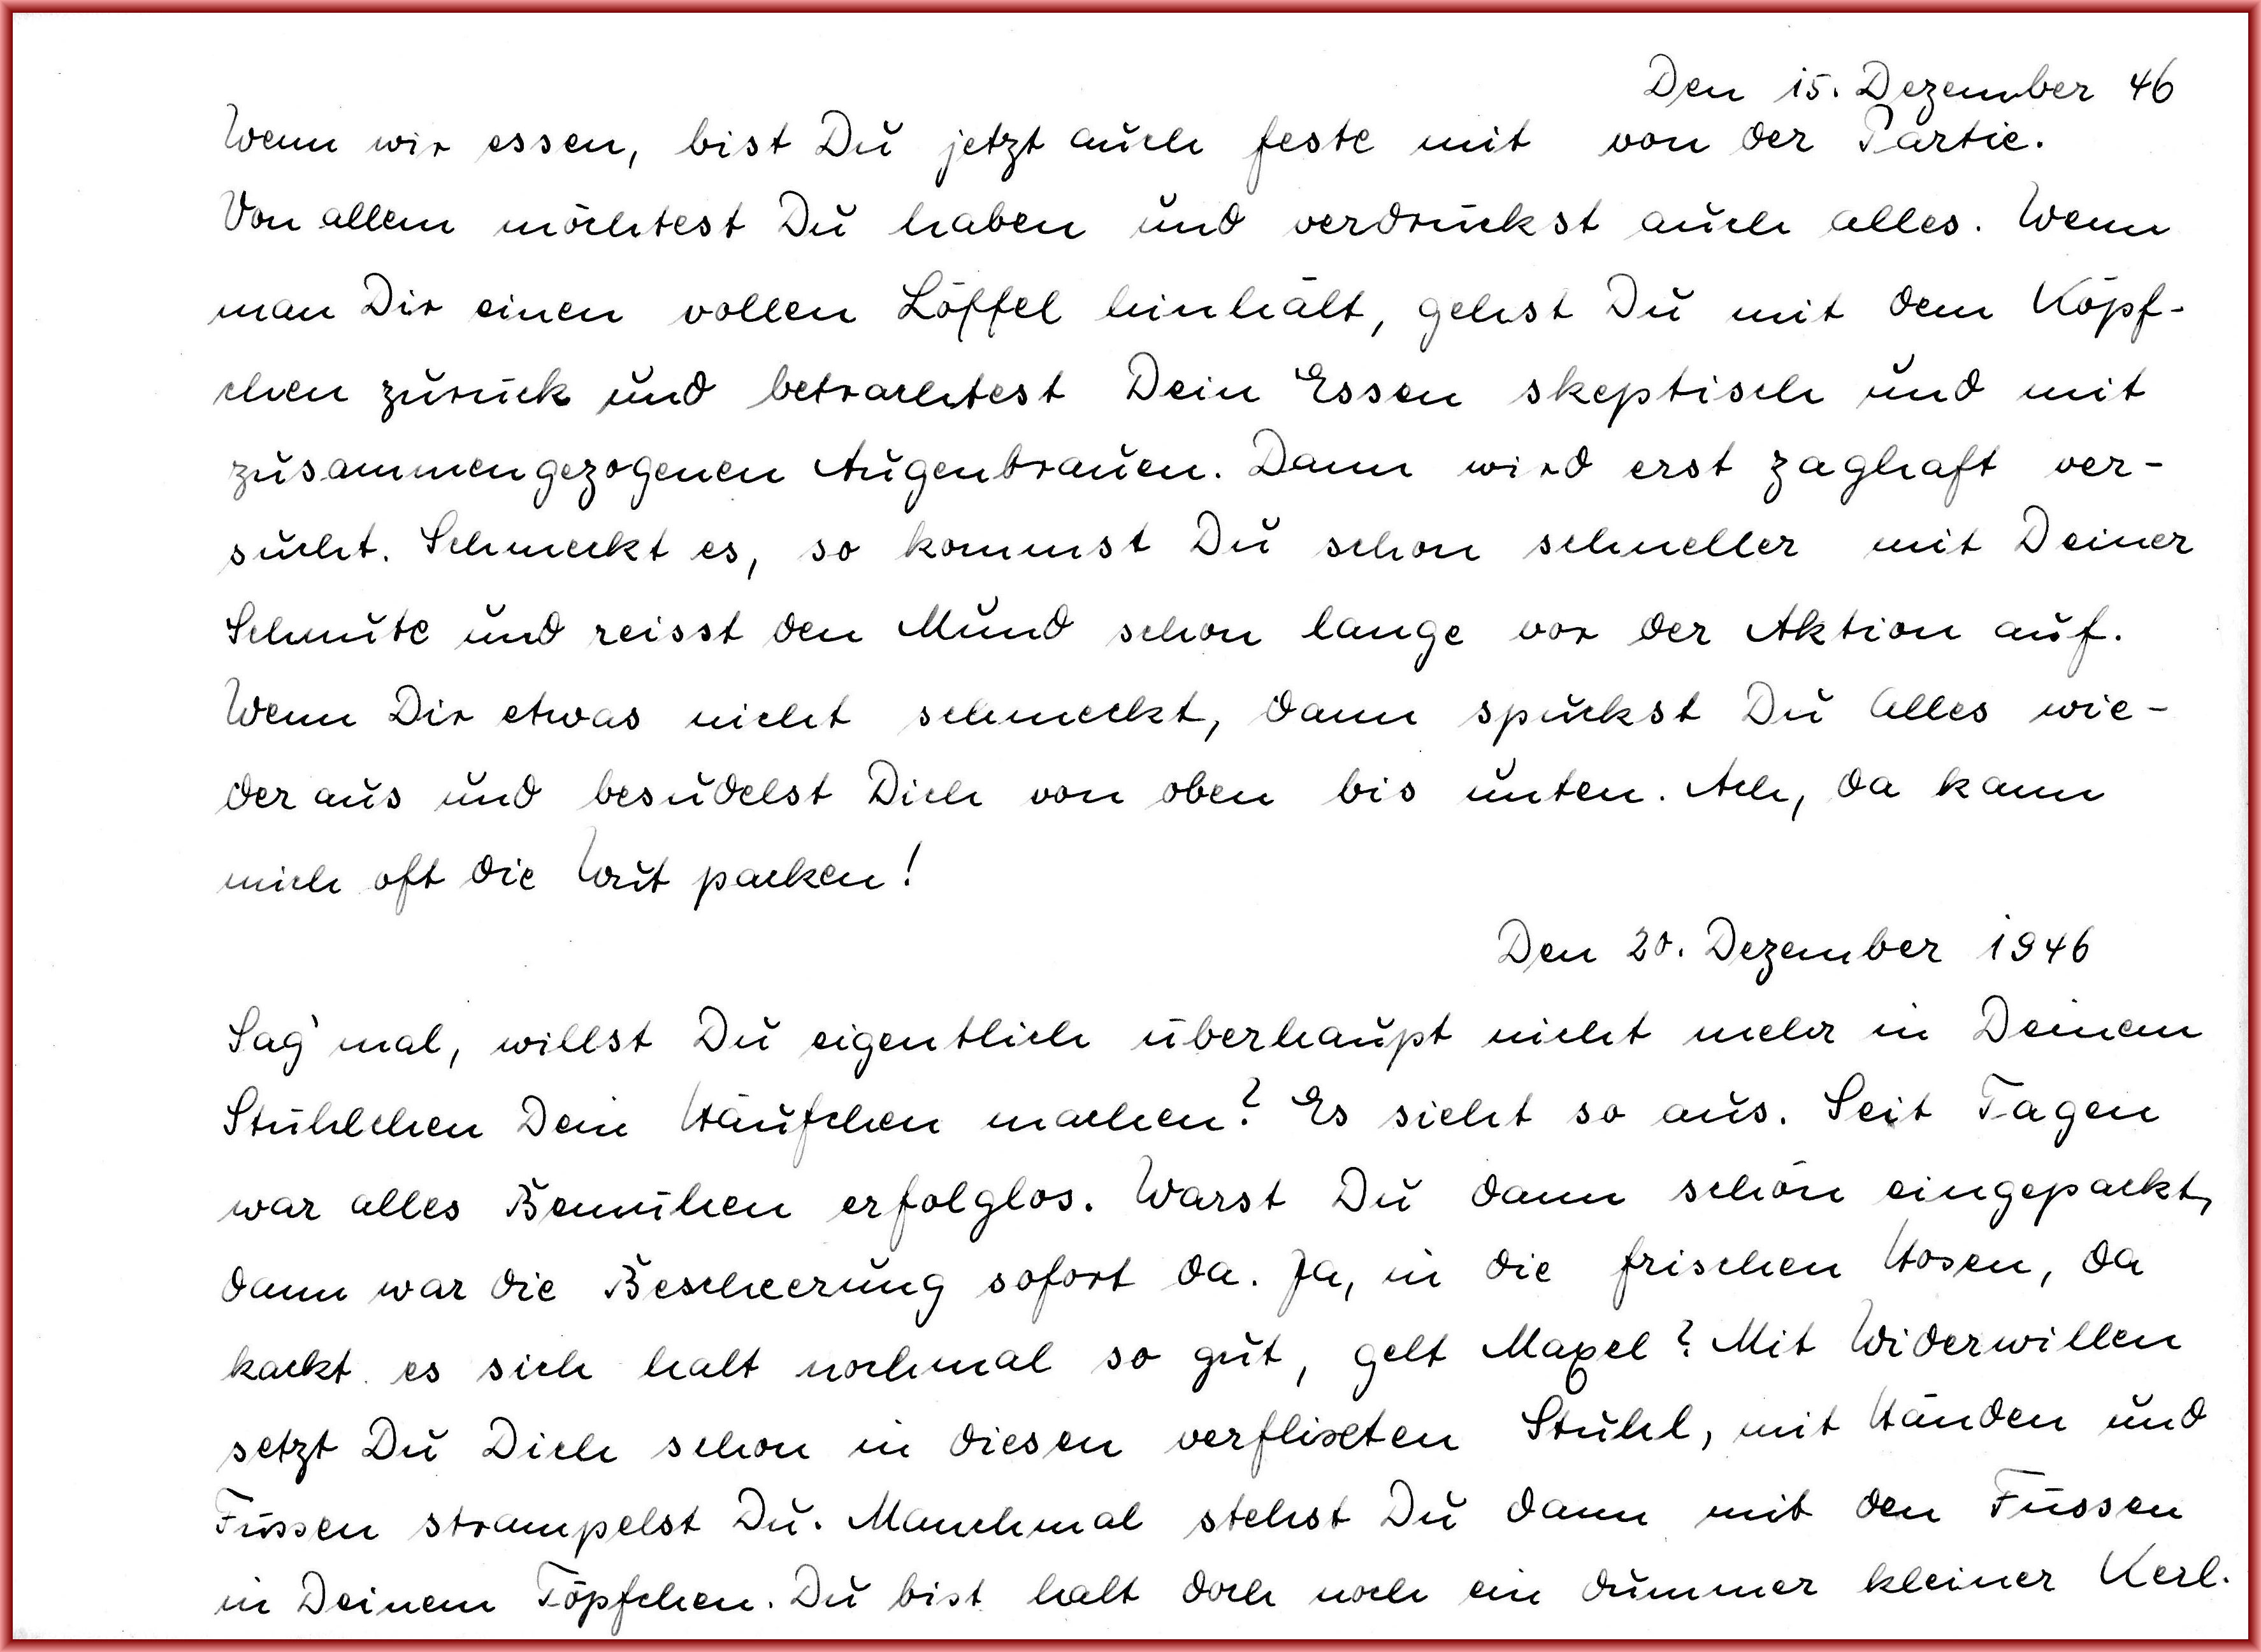 Den 15. Dezember 46
Wenn wir essen, bist Du jetzt auch feste mit von der Partie.
Von allem möchtest Du haben und verdrückst auch alles. Wenn
man Dir einen vollen Löffel hinhält, gehst Du mit dem Köpf-
chen zurück und betrachtest Dein Essen skeptisch und mit
zusammengezogenen Augenbrauen. Dann wird erst zaghaft ver-
sucht. Schmeckt es, so kommst Du schon schneller mit Deiner
Schnute und reisst den Mund schon lange vor der Aktion auf.
Wenn Dir etwas nicht schmeckt, dann spuckst Du alles wie-
der aus und besudelst Dich von oben bis unten. Ach, da kann
mich oft die Wut packen!
Den 20. Dezember 1946
Sag' mal, willst Du eigentlich überhaupt nicht mehr in Deinem
Stühlchen Dein Häufchen machen? Es sieht so aus. Seit Tagen
war alles Bemühen erfolglos. Warst Du dann schön eingepackt,
dann war die Bescheerung sofort da. Ja, in die frischen Hosen, da
kackt es sich halt nochmal so gut, gelt Maxel? Mit Widerwillen
setzt Du Dich schon in diesen verflixten Stuhl, mit Händen und
Füssen strampelst Du. Manchmal stehst Du dann mit den Füssen
in Deinem Töpfchen. Du bist halt doch noch ein dummer kleiner Kerl.